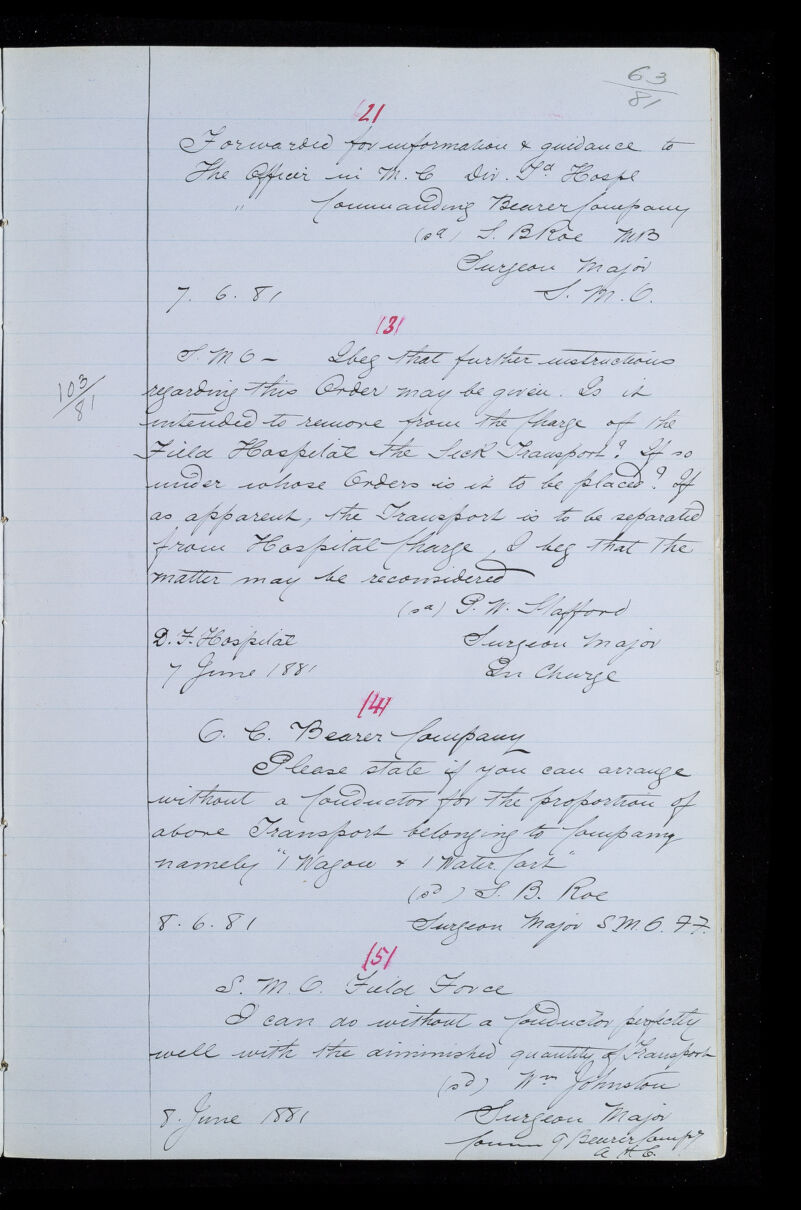 63
81
(2)
Forwarded for information & guidance to
The Officer in M. C Div. Fd Hospl
" Commanding Bearer Company
(sd) S. B Roe MB
Surgeon Major
7. 6. 81 S. M. O.
(3)
S. M O - I beg that further instructions
103/81
regarding this Order may be given. Is it
intended to remove from the Charge of the
Field Hospital the Sick Transport? If so
under whose Orders is it to be placed? If
as apparent, the Transport is to be separated
from Hospital Charge, I beg that the
matter may be reconsidered
(sd) P. W. Stafford
D. F. Hospital Surgeon Major
7 June 1881 In Charge
(4)
O. C. Bearer Company
Please state if you can arrange
without a Conductor for the proportion of
above Transport belonging to Company
namely "1 Wagon & 1 Water Cart"
(sd) S. B. Roe
8. 6. 81 Surgeon Major S M. O. F F.
(5)
S. M. O. Field Force
I can do without a Conductor perfectly
well with the diminished quantity of Transport
(sd) Wm Johnston
8. June 1881 Surgeon Major
Bearer Compy
A H. C.